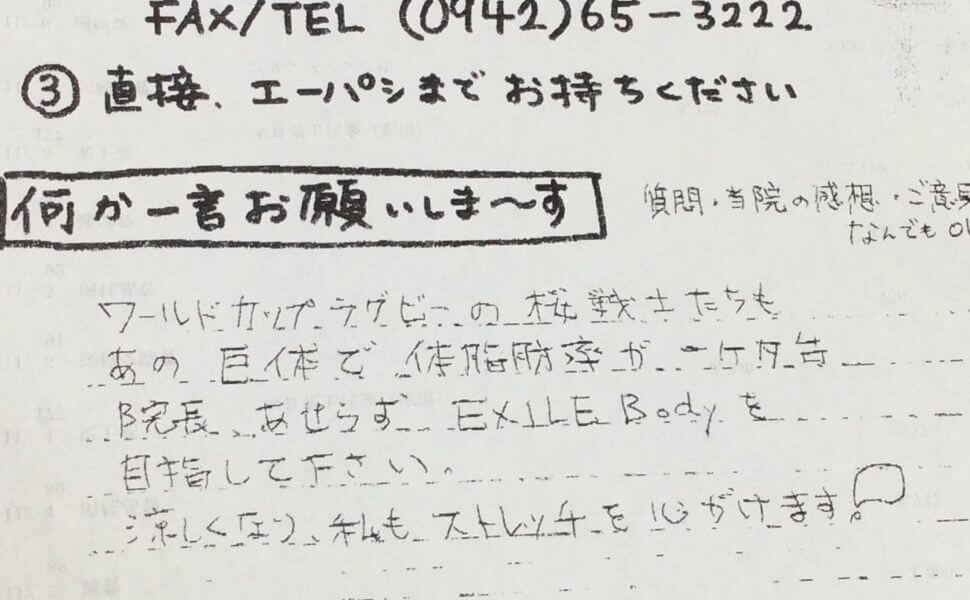 FAX/TEL (0942)65-3222
③ 直接、エーパシまで お持ちください
何か一言お願いしま〜す
質問・当院の感想・ご意見
なんでもOK
ワールドカップラグビーの 桜戦士たちも
あの 巨体で 体脂肪率が 一ケタ台
B院長、あせらず EXILE Bodyを
目指して下さい。
涼しくなり、私も ストレッチを 心がけます。